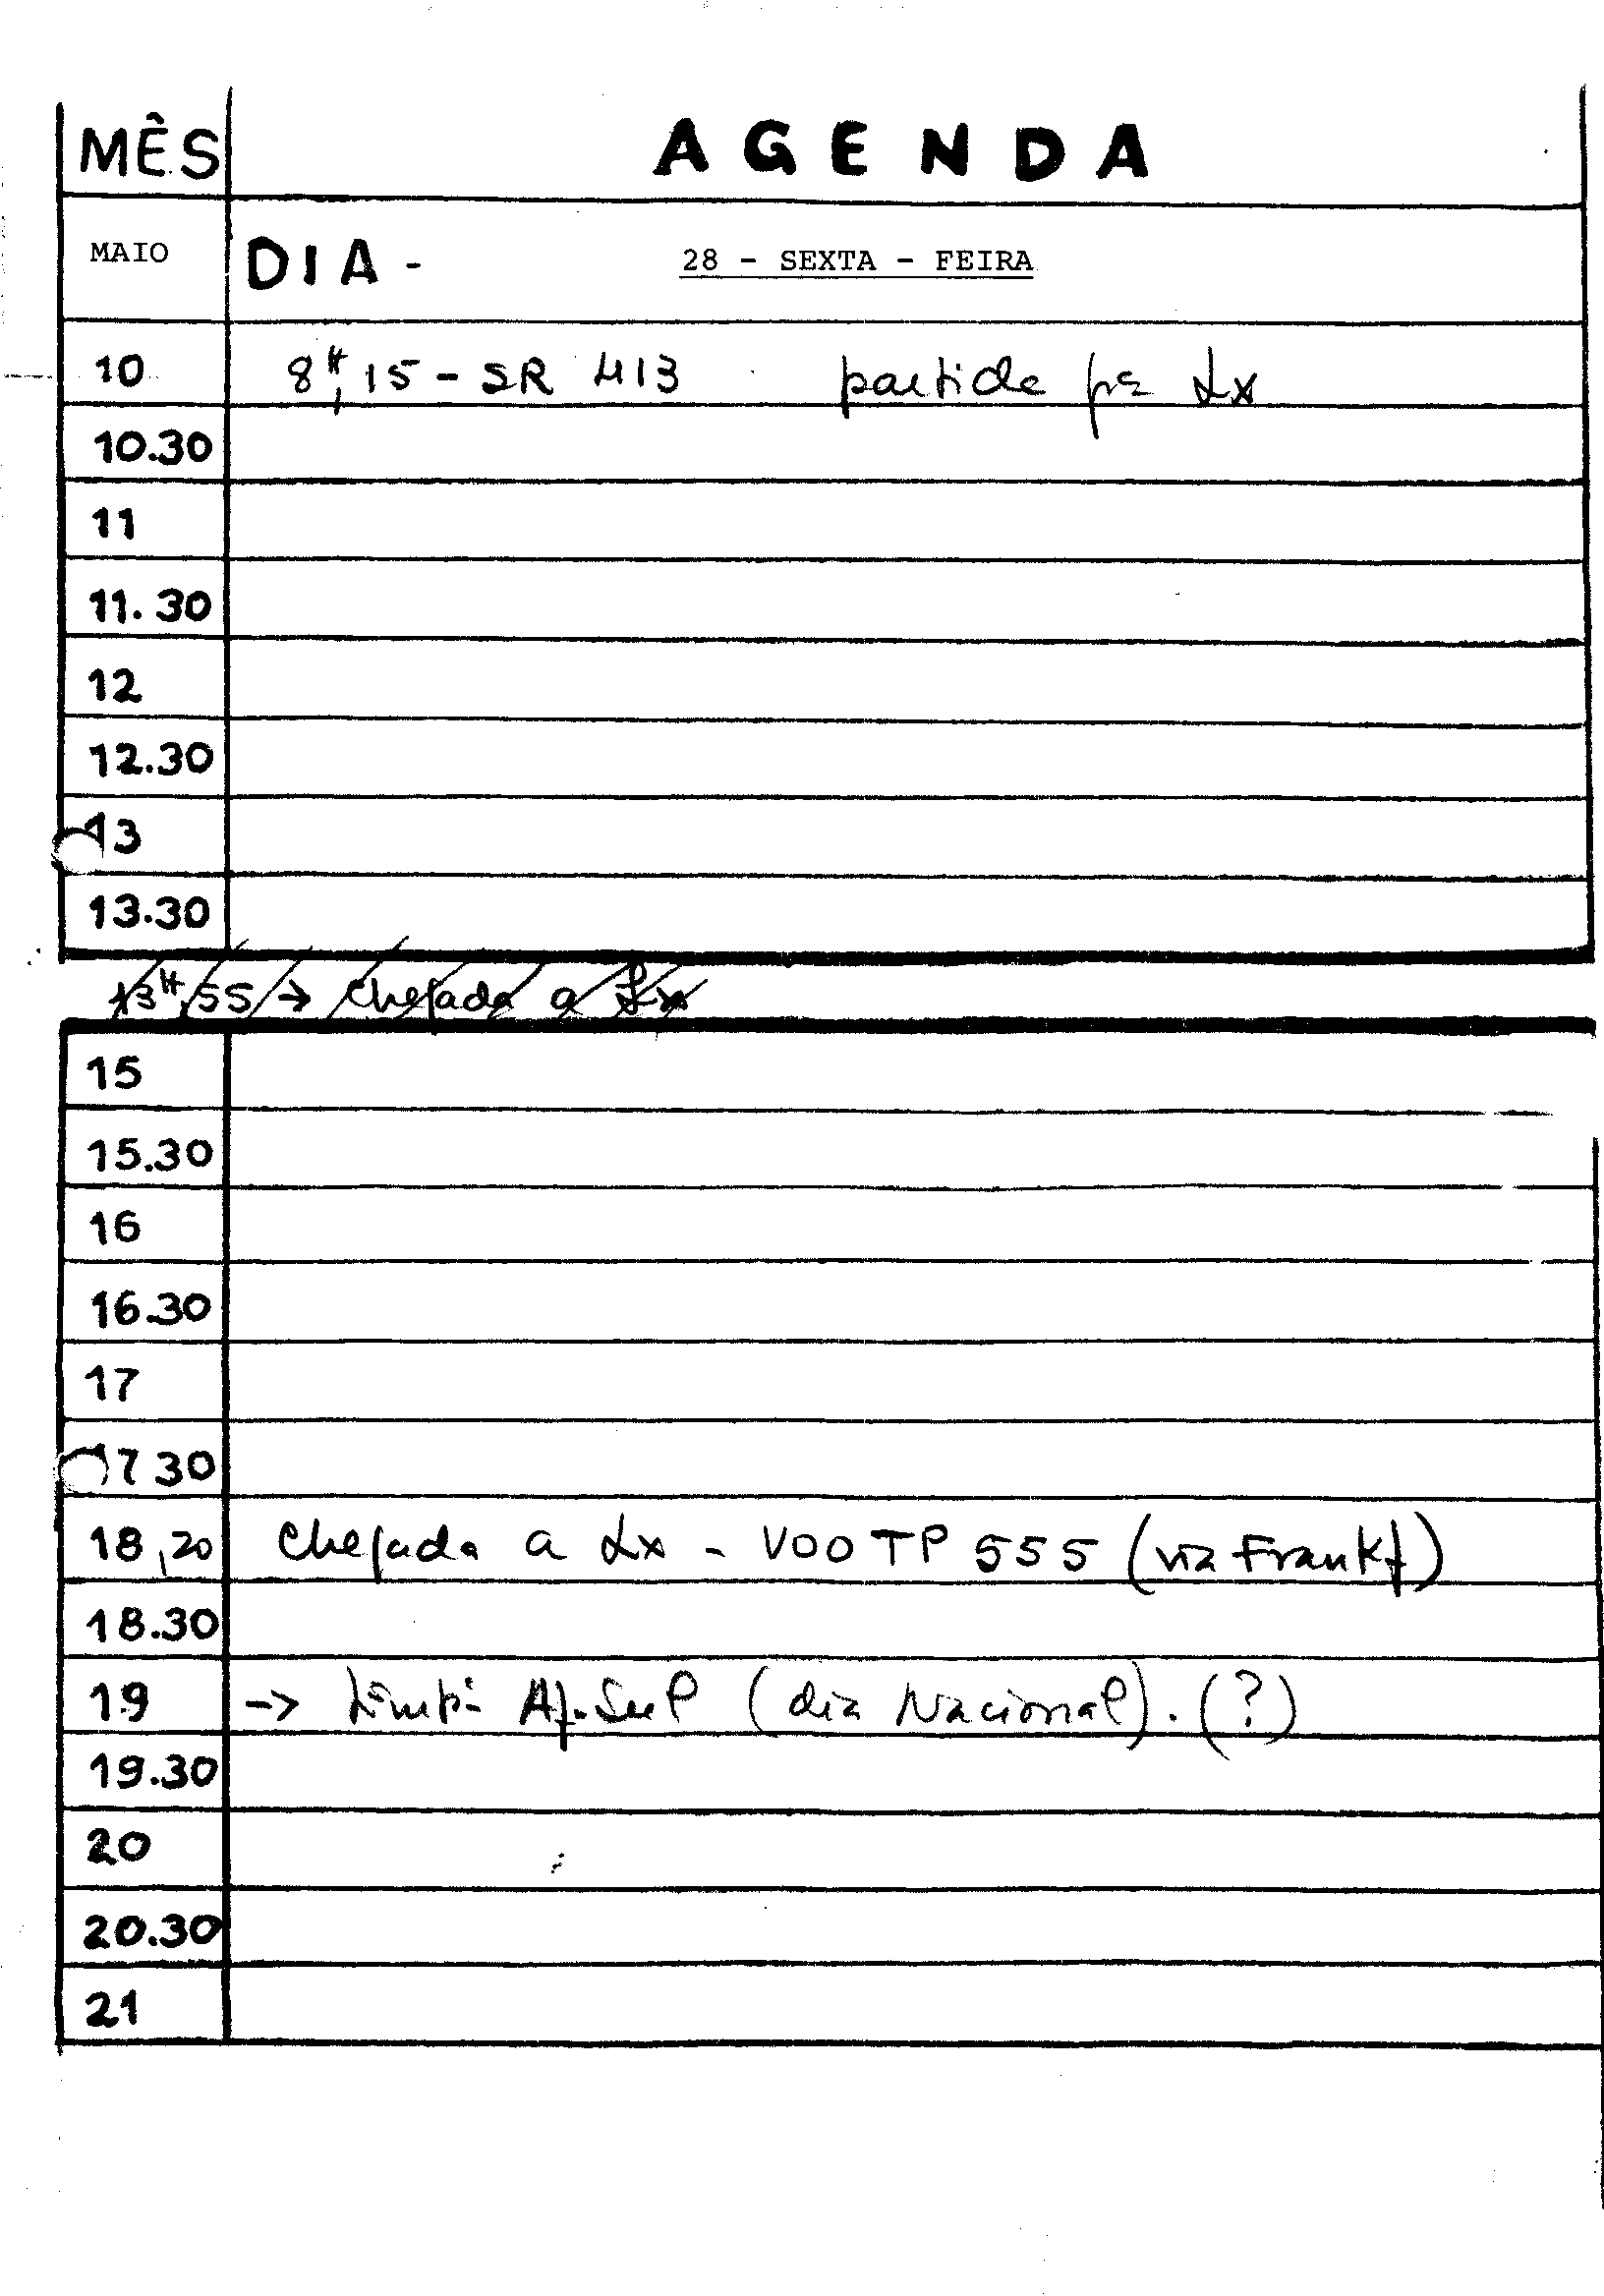 MÊS AGENDA
MAIO DIA - 28 - SEXTA - FEIRA
10 8H,15 - SR 413 partida pa Lx
10.30
11
11.30
12
12.30
13
13.30
13H,55 → Chegada a Lx
15
15.30
16
16.30
17
17 30
18,20 Chegada a Lx - VOO TP 555 (via Frankf)
18.30
19 → Af. Sul (dia Nacional). (?)
19.30
20
20.30
21